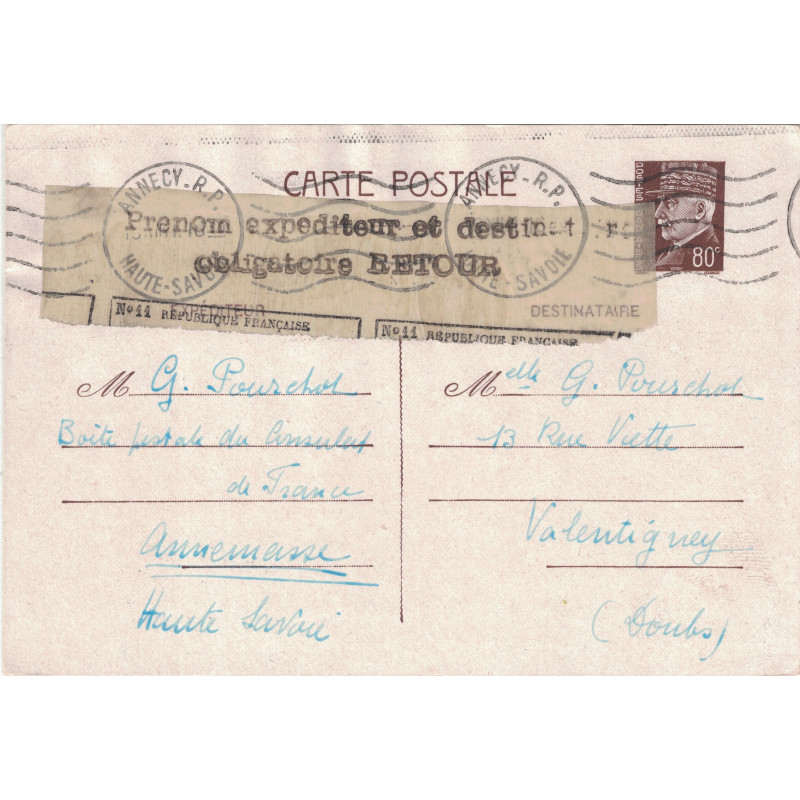 CARTE POSTALE
80c
ANNECY-R.P.
HAUTE-SAVOIE
ANNECY-R.P.
TE-SAVOIE
Prenom expediteur et destinat r
obligatoire RETOUR
EXPÉDITEUR
DESTINATAIRE
No11 RÉPUBLIQUE FRANÇAISE
No11 RÉPUBLIQUE FRANÇAISE
M G. Pourchot
Boîte postale du Consulat
de France
Annemasse
Haute Savoie
Melle G. Pourchot
13 Rue Viette
Valentigney
(Doubs)